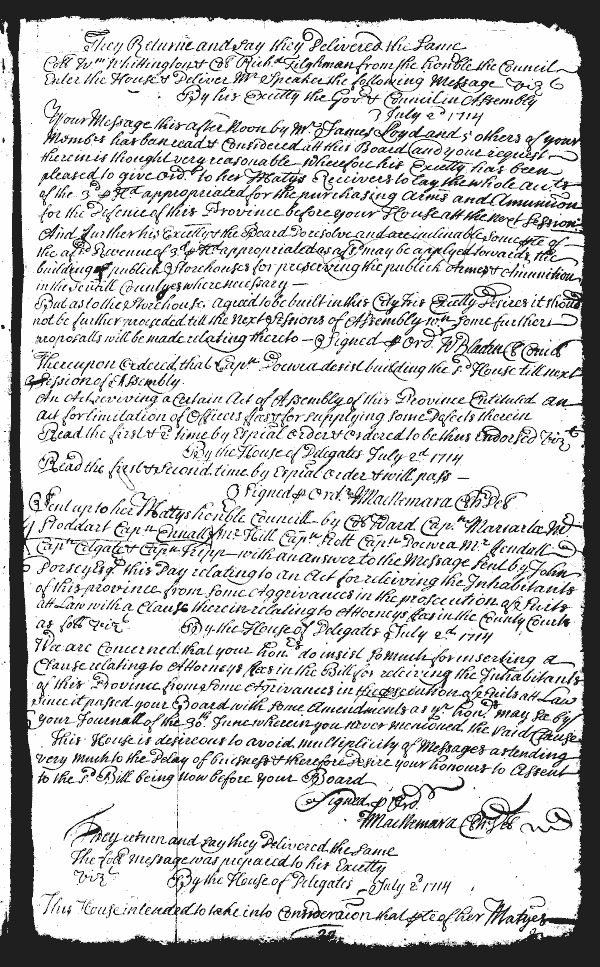 They Returne and say they Delivered the Same
Coll Wm Whittington & Coll Richd Tilghman from the honble the Council
Enter the House & Deliver Mr Speaker the following Message vizt
By his Excellty the Govr & Council in Assembly
July 2d 1714
Your Message this after Noon by Mr James Loyd and 5 others of your
Membrs has been read & Considered att this Board and your request
therein is thought very reasonable wherefore his Excellty has been
pleased to give Ordrs to her Matys Receivers to lay the whole Accts
of the 3d p hhd appropriated for the purchasing Arms and Amunicion
for the Defence of this Province before your House att the next Session
And further his Excellty & the Board Do resolve and are inclinable some pte of
the afd Revenue of 3d p hhd appropriated as afd may be applyed towards the
building of publick Storehouses for preserving the publick Armes & Amunition
in the severall Countyes where necessary —
But as to the Storehouse agreed to be built in this City his Excellty Desires it should
not be further proceeded till the next Sessions of Assembly wn some further
proposalls will be made relating thereto — Signed p Ordr W Bladen Cl Concil
Thereupon Ordered that Captn Docwra desist building the sd House till next
Session of Assembly.
An Act reviving a Certain Act of Assembly of this Province Entituled an
Act for limitation of Officers ffees & for supplying some Defects therein
Read the first & 2d time by Espial Order & Ordered to be thus Endorsed vizt
By the House of Delegates July 2d 1714
Read the first & second time by Espial Order & will pass —
Signed p Ordr Macnemara Cl h Del
Sent up to her Matys honble Councill by Coll Ward Captn Mansarla Mr
Stoddart Captn Mr Hill Captn Hott Captn Docwra Mr Kendall
Captn Colgate & Captn Tripp — with an answer to the Message sent by John
Dorsey Esqr this Day relating to an Act for releiving the Inhabitants
of this province from some Aggrivances in the prosecution of Suits
att Law with a Clause therein relating to Attorneys ffees in the County Courts
as foll vizt By the House of Delegates July 2d 1714
We are Concerned that your honrs do insist so much for inserting a
Clause relating to Attorneys ffees in the Bill for releiving the Inhabitants
of this Province from some Agrivances in the prosecution of Suits att Law
since it passed your Board with some Amendments as yr honrs may see by
your Journall of the 30th June wherein you never mentioned the said Clause
This House is desireous to avoid multiplicity of Messages as tending
very much to the Delay of business & therefore desire your honours to Assent
to the sd Bill being now before your Board
Signed p Ordr
Macnemara Cl h Del
They return and say they Delivered the same
The foll message was prepared to his Excellty
vizt By the House of Delegates July 2d 1714
This House intended to take into Consideracon that pte of her Matyes